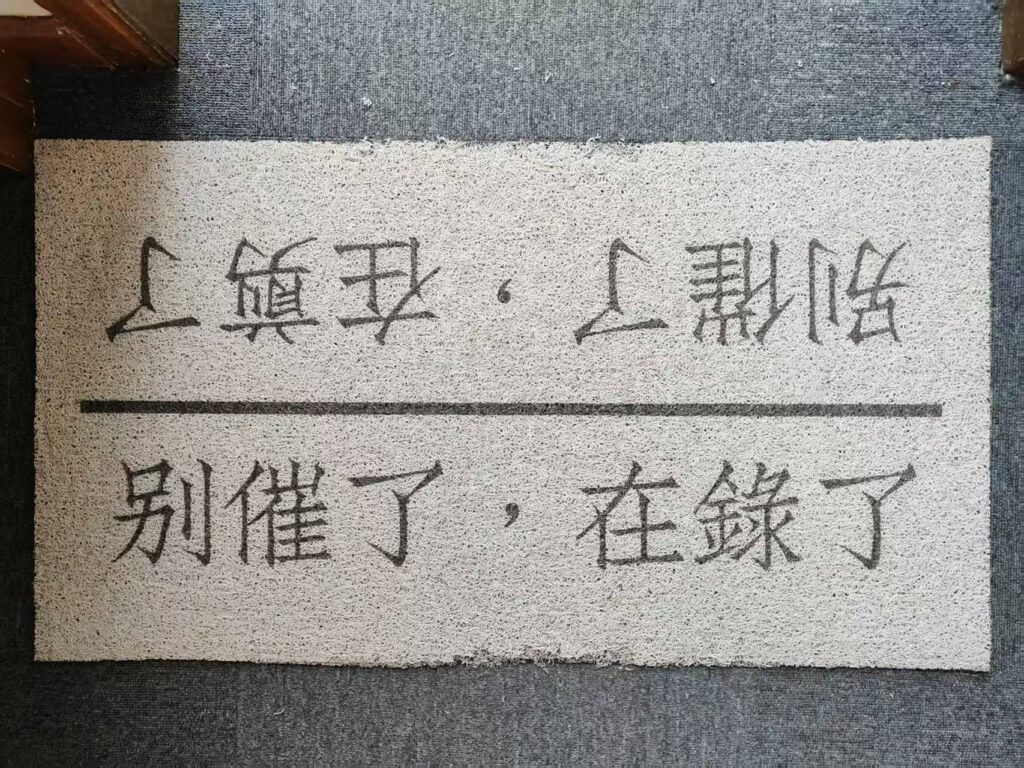 别催了，在剪了
别催了，在錄了